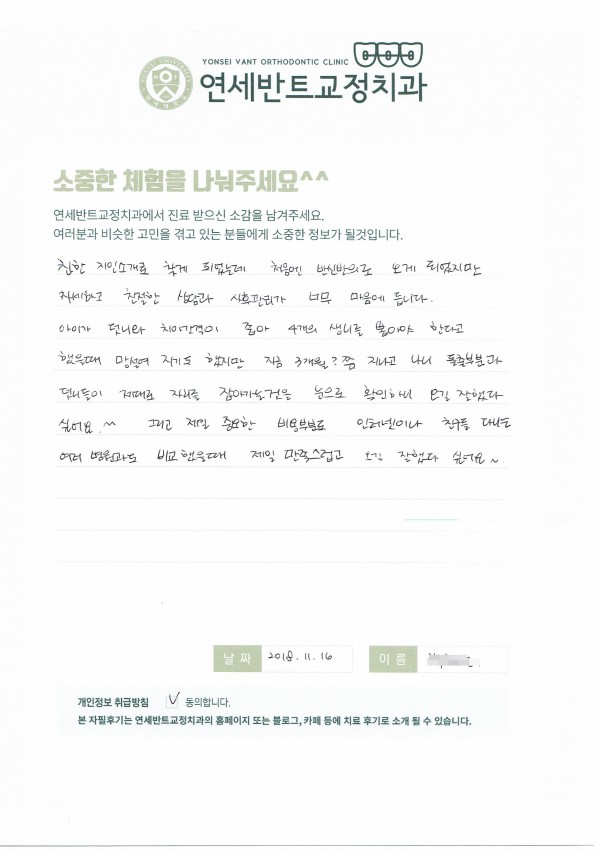 YONSEI VANT ORTHODONTIC CLINIC
연세반트교정치과
소중한 체험을 나눠주세요^^
연세반트교정치과에서 진료 받으신 소감을 남겨주세요.
여러분과 비슷한 고민을 겪고 있는 분들에게 소중한 정보가 될것입니다.
친한 지인소개로 찾게 되었는데 처음엔 반신반의로 오게 되었지만
자세하고 친절한 상담과 사후관리가 너무 마음에 듭니다.
아이가 덧니와 치아간격이 좁아 4개의 생니를 뽑아야 한다고
했을때 망설여 지기도 했지만 지금 3개월?쯤 지나고 나니 돌출부분과
덧니들이 제대로 자리를 잡아가는것은 눈으로 확인하니 오길 잘했다
싶어요.^^ 그리고 제일 중요한 비용부분도 인터넷이나 친구들 다니는
여러 병원과도 비교했을때 제일 만족스럽고 오길 잘했다 싶어요~
날 짜 2018.11.16 이 름
개인정보 취급방침 V 동의합니다.
본 자필후기는 연세반트교정치과의 홈페이지 또는 블로그, 카페 등에 치료 후기로 소개 될 수 있습니다.